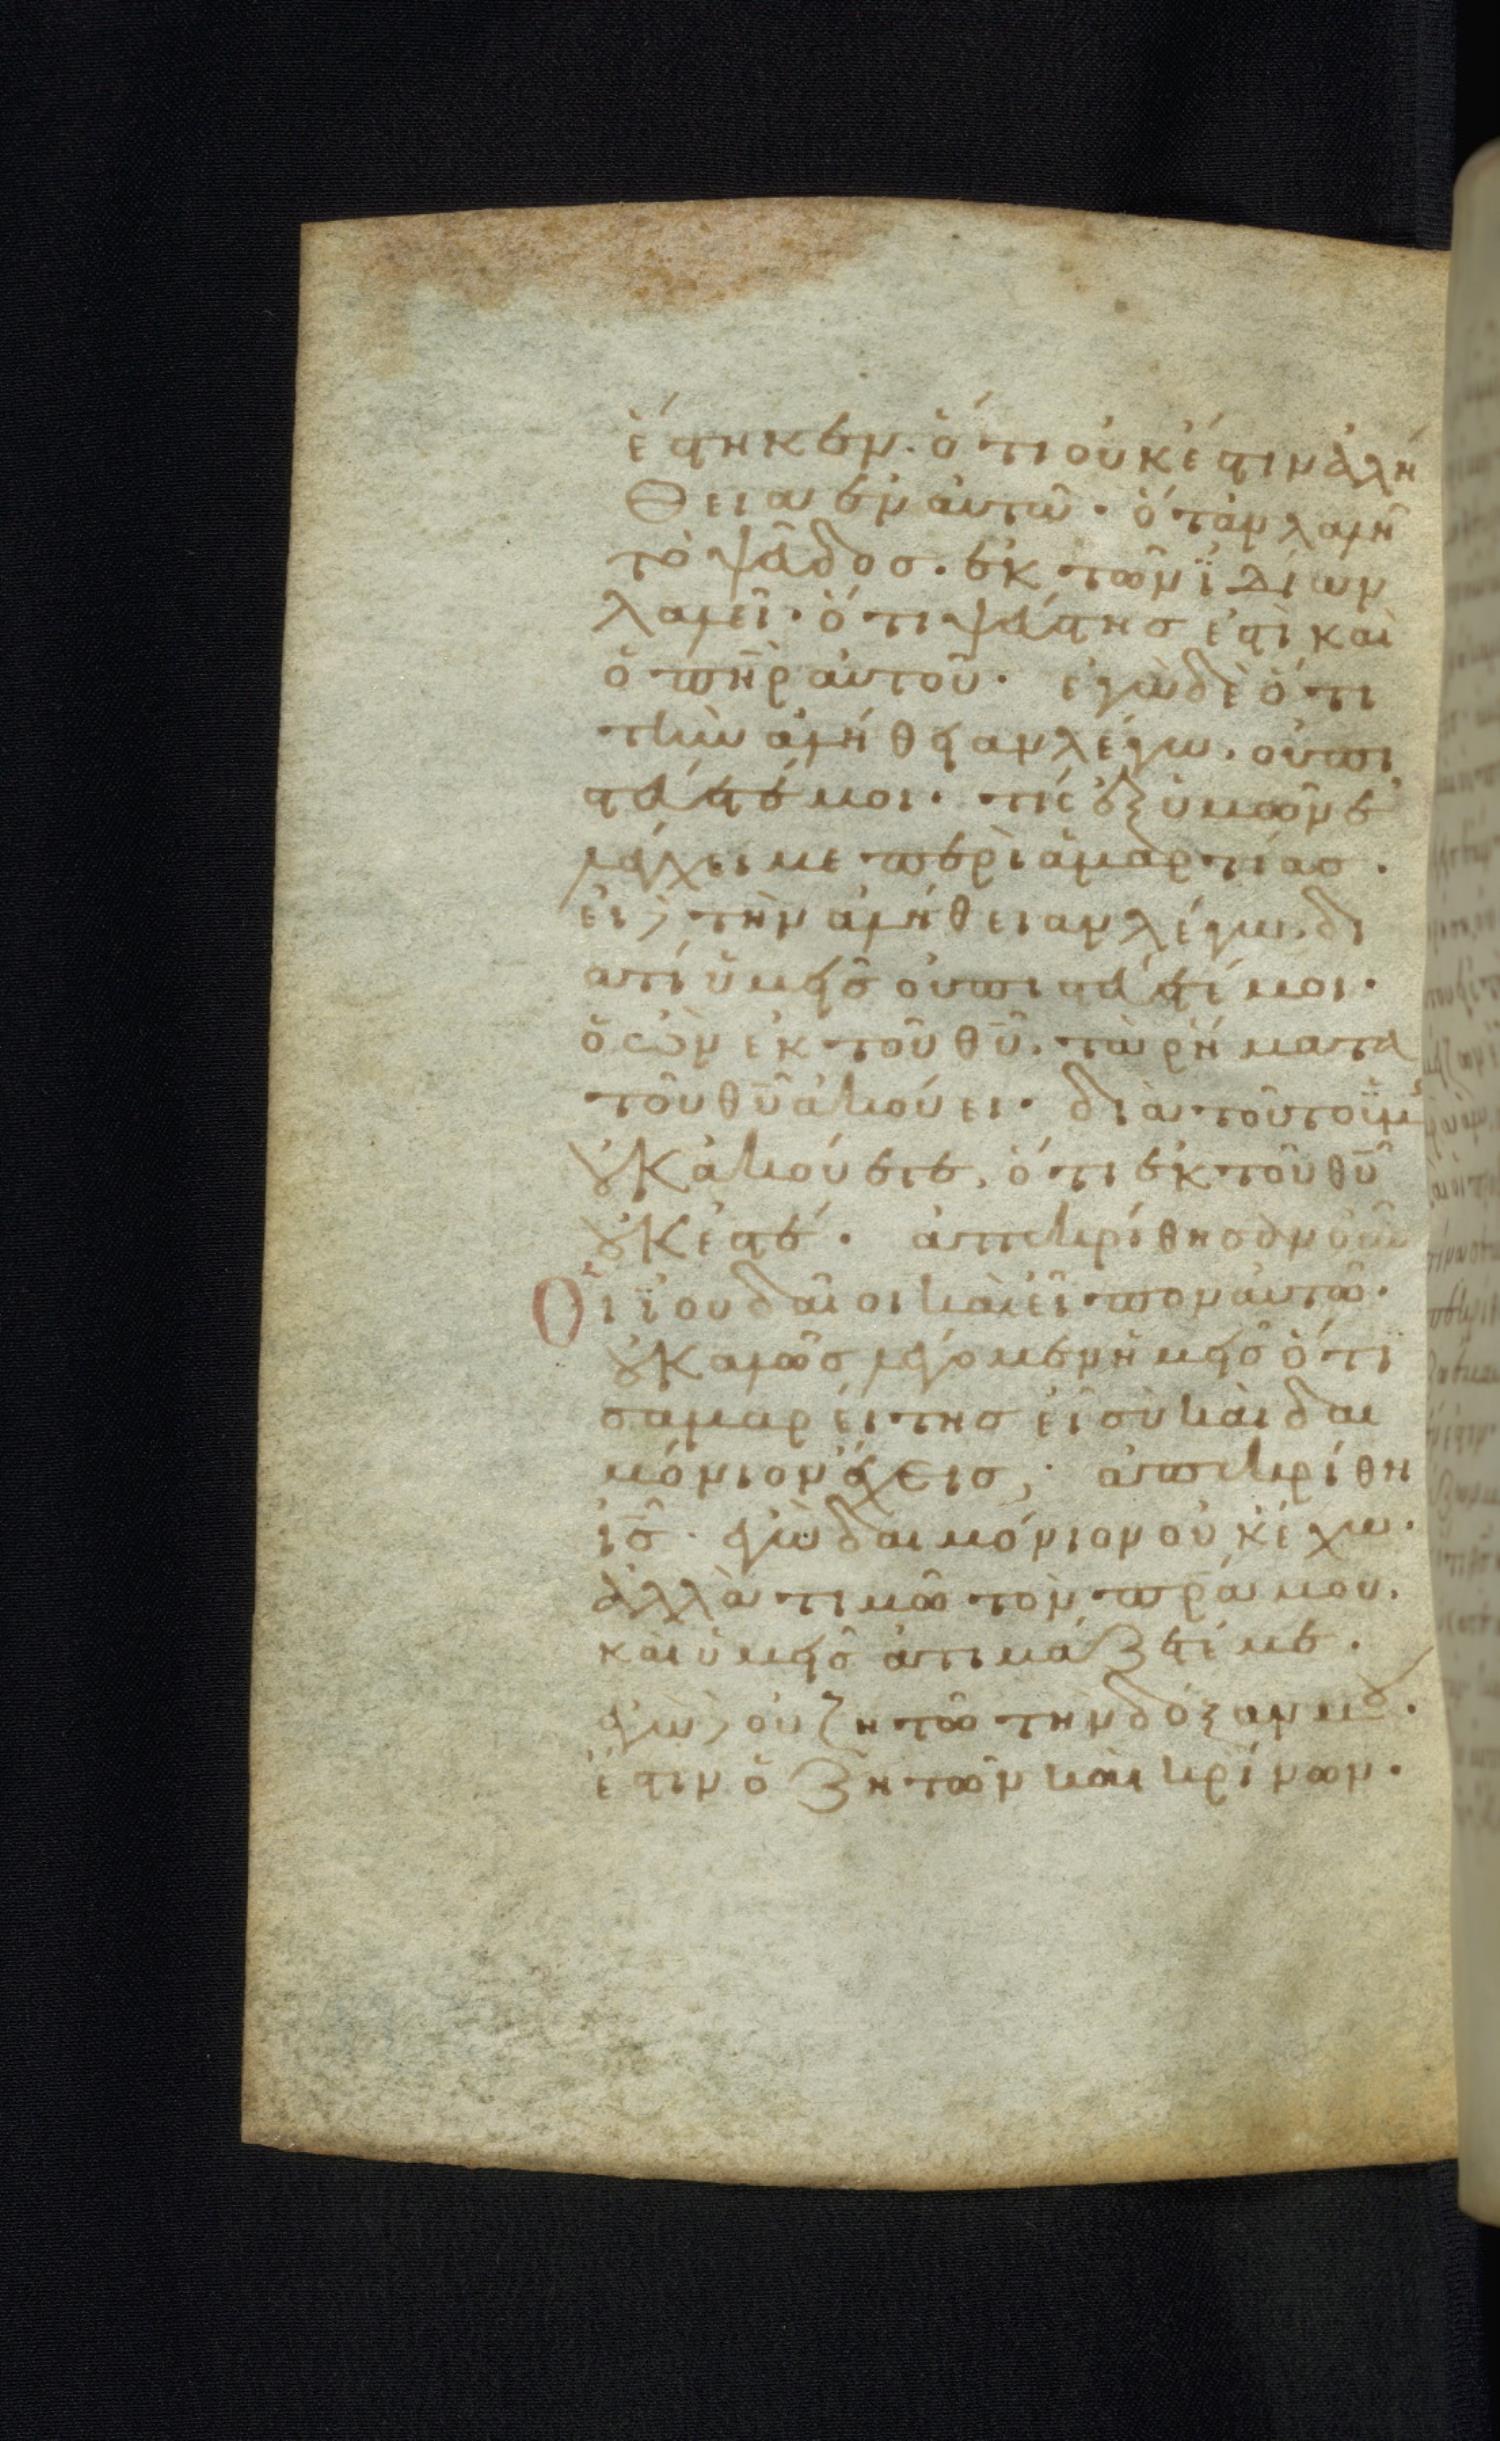 ἕστηκεν· ὅτι οὐκ ἔστιν ἀλή
θεια ἐν αὐτῶ· ὅταν λαλῆ
τὸ ψεῦδος· ἐκ τῶν ϊδίων
λαλεῖ· ὅτι ψεύστης ἐστὶ καὶ
ὁ πη̅ρ αὐτοῦ· ἐγὼ δὲ ὅτι
τὴν ἀλήθειαν λέγω· οὐ πι
στεύετέ μοι· τίς ἐξ ὑμῶν ἐ
λέγχει με περὶ ἁμαρτίας·
εἰ τὴν ἀλήθειαν λέγω· δι
ατί ὑμεῖς οὐ πιστεύετέ μοι·
ὁ ὢν ἐκ τοῦ θυ̅· τὰ ρήματα
τοῦ θυ̅ ἀκούει· διὰ τοῦτο ϋμεῖς
οὐκ ἀκούετε, ὅτι ἐκ τοῦ θυ̅
οὐκ ἐστέ· ἀπεκρίθησαν οὖν
Οἱ ϊουδαῖοι καὶ εἶπον αὐτῶ·
οὐ καλῶς λέγομεν ἡμεῖς ὅτι
σαμαρείτης εἶ σὺ καὶ δαι
μόνιον ἔχεις; ἀπεκρίθη
ις̅· ἐγὼ δαιμόνιον οὐκ ἔχω·
ἀλλὰ τιμῶ τὸν πρ̅α μου·
καὶ ὑμεῖς ἀτιμάζετέ με·
ἐγὼ οὐ ζητῶ τὴν δόξαν μου·
ἔστιν ὁ ζητῶν καὶ κρίνων·